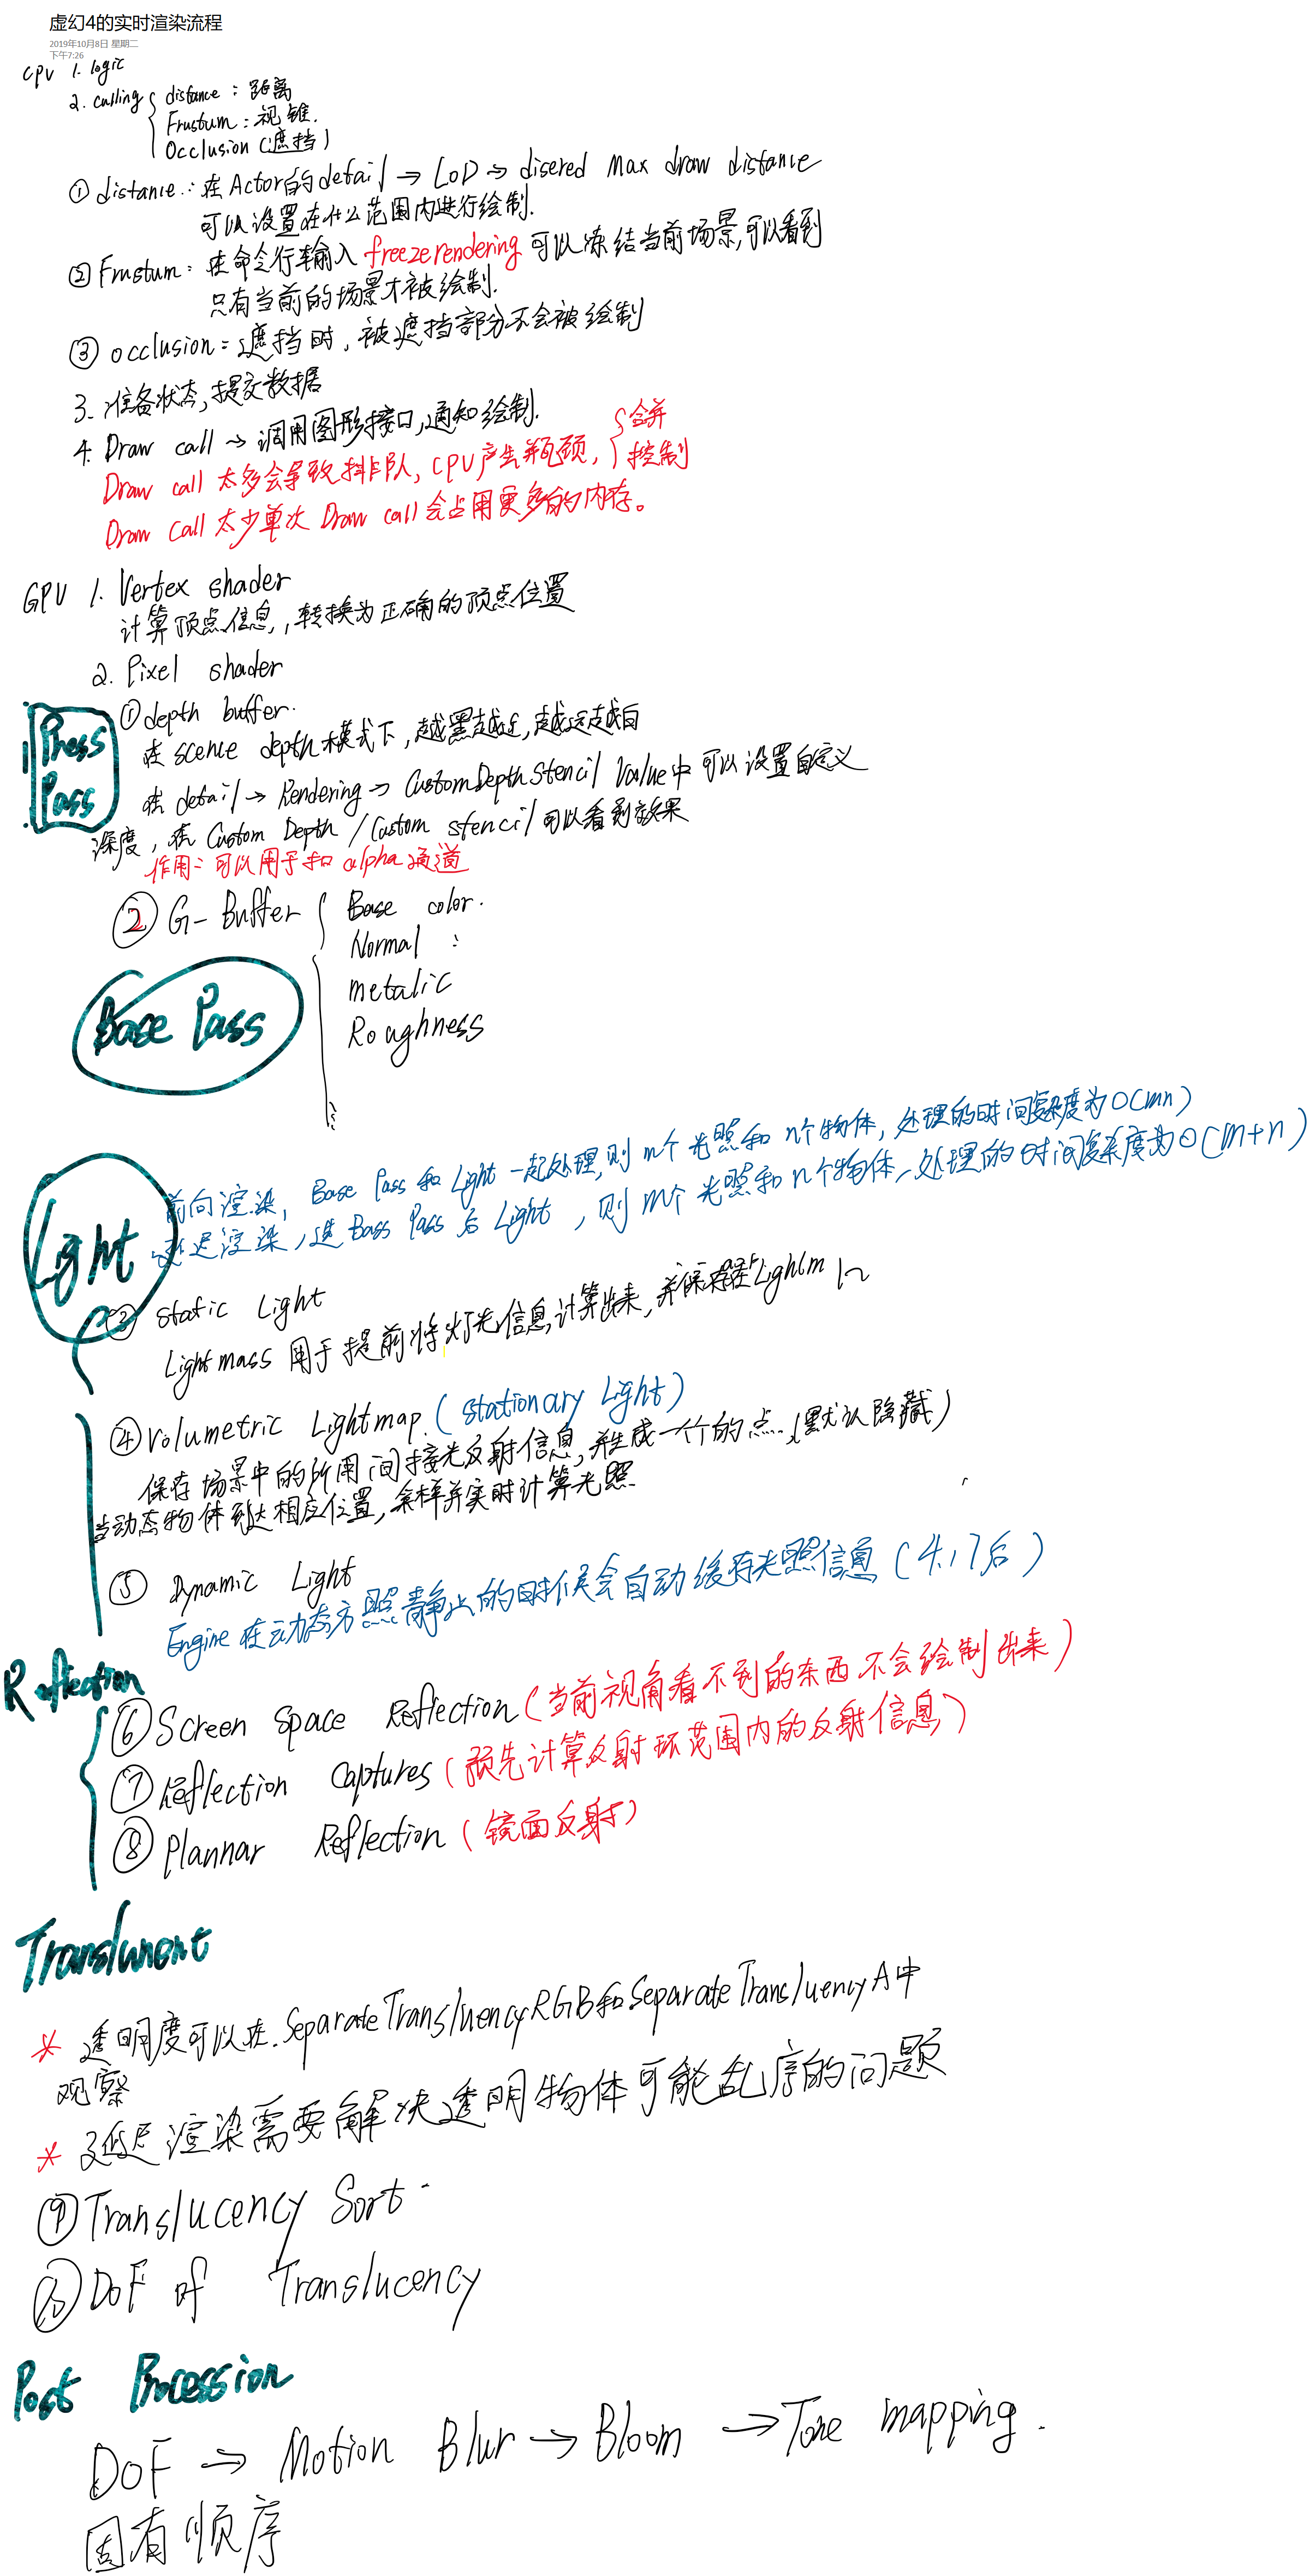 虚幻4的实时渲染流程
2019年10月8日 星期二
下午7:26
CPU 1. logic
2. culling { distance：距离
Frustum：视锥.
Occlusion（遮挡）
① distance：在Actor的detail → LoD → disered Max draw distance
可以设置在什么范围内进行绘制.
② Frustum：在命令行输入 freezerendering 可以冻结当前场景,可以看到
只有当前的场景才被绘制.
③ occlusion：遮挡时，被遮挡部分不会被绘制
3. 准备状态,提交数据
4. Draw call → 调用图形接口,通知绘制.
Draw call 太多会导致排队, CPU产生瓶颈, { 合并
控制
Draw Call 太少单次 Draw call 会占用更多的内存。
GPU 1. Vertex shader
计算顶点信息,转换为正确的顶点位置
2. Pixel shader
① depth buffer.
Press
Pass
在 scence depth 模式下,越黑越近,越远越白
在 detail → Rendering → CustomDepthStencil Value中可以设置自定义
深度，在 Custom Depth / Custom stencil 可以看到效果
作用：可以用于和 alpha 通道
② G-Buffer { Base color.
Normal :
metalic
Roughness
Base Pass
Light
前向渲染, Base Pass 和 Light 一起处理,则 m个光照和 n个物体, 处理的时间复杂度为O(mn)
延迟渲染,进 Bass Pass 后 Light , 则 m个光照和 n个物体,处理的时间复杂度为O(m+n)
③ static Light
Lightmass 用于提前将灯光信息计算出来,并保存到Lightm
④ Volumetric Lightmap.( stationary Light )
保存场景中的所用间接光反射信息,并生成一个个的点.(默认隐藏)
当动态物体到达相应位置,采样并实时计算光照.
⑤ Dynamic Light
Engine 在动态方照静止的时候会自动缓存光照信息 ( 4.17后 )
Reflection
⑥ Screen Space Reflection (当前视角看不到的东西不会绘制出来)
⑦ Reflection Captures (预先计算反射环范围内的反射信息)
⑧ Plannar Reflection (镜面反射)
Translunent
* 透明度可以在.SeparateTransluencyRGB和SeparateTransluencyA中
观察
* 延迟渲染需要解决透明物体可能乱序的问题
⑨ Translucency Sort.
⑩ DoF of Translucency
Post Procession
DoF → Motion Blur → Bloom → Tone mapping.
固有顺序